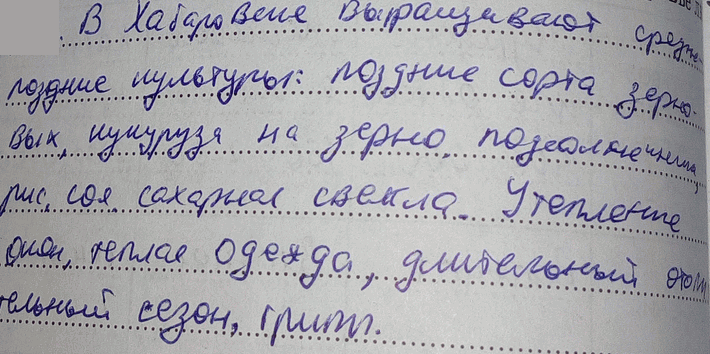 В Хабаровске выращивают средне-
поздние культуры: поздние сорта зерно-
вых, кукуруза на зерно, подсолнечник,
рис, соя, сахарная свекла. Утепление
окон, теплая одежда, длительный отопи
тельный сезон, грипп.